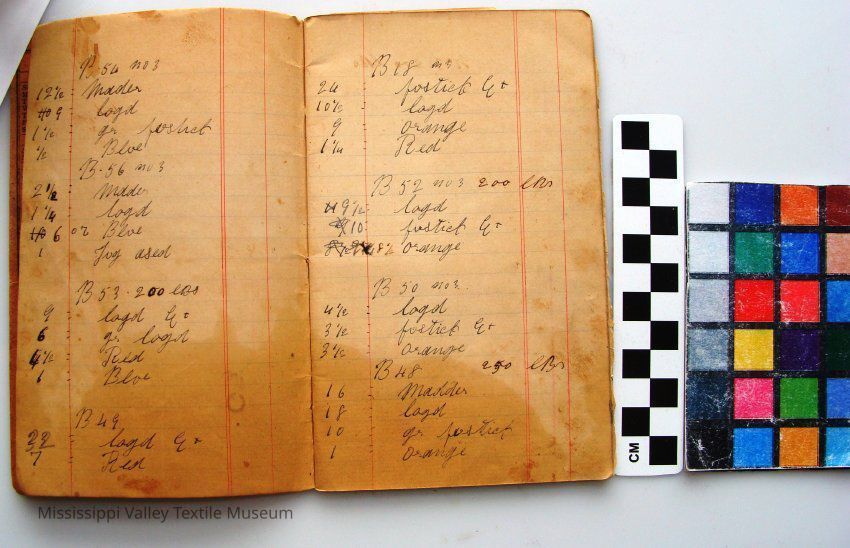 B 54 no 3
12 1/2 Mader
9 logd
1 1/2 gr fostict
1/2 Blve
B-56 no 3
2 1/2 Mader
1 1/4 logd
6 or Blve
1 Jug ased
B 53-200 lbs
9 logd Ex
6 gr logd
4 1/2 Red
1 Blve
B 49
22 logd Ex
7 Red
B 18 no 3
24 fostick Ex
10 1/2 logd
9 orange
1 1/4 Red
B 52 no 3 200 lbs
9 1/2 logd
10 fostick Ex
orange
B 50 no 3
4 1/2 logd
3 1/2 fostick Ex
3 1/2 orange
B 48 250 lbs
16 Madder
18 logd
10 gr fostict
1 orange
CM
Mississippi Valley Textile Museum